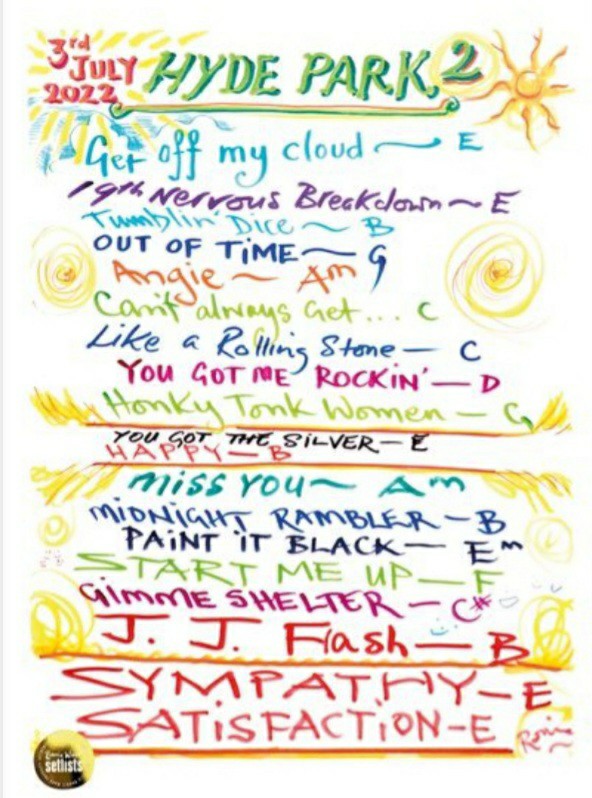 3rd
JULY
2022
HYDE PARK 2
Get off my cloud ~ E
19th Nervous Breakdown ~ E
Tumblin' Dice ~ B
OUT OF TiME ~ G
Angie ~ Am
Can't always Get... C
Like a Rolling Stone — C
YOU GOT ME ROCKIN' — D
Honky Tonk Women — G
YOU GOT THE SiLVER — E
HAPPY — B
miss you ~ Am
MiDNiGHT RAMBLER — B
PAiNT iT BLACK — Em
START ME UP — F
GiMME SHELTER — C#
J. J. Flash — B
SYMPATHY — E
SATiSFACTiON — E
Ronnie
setlists